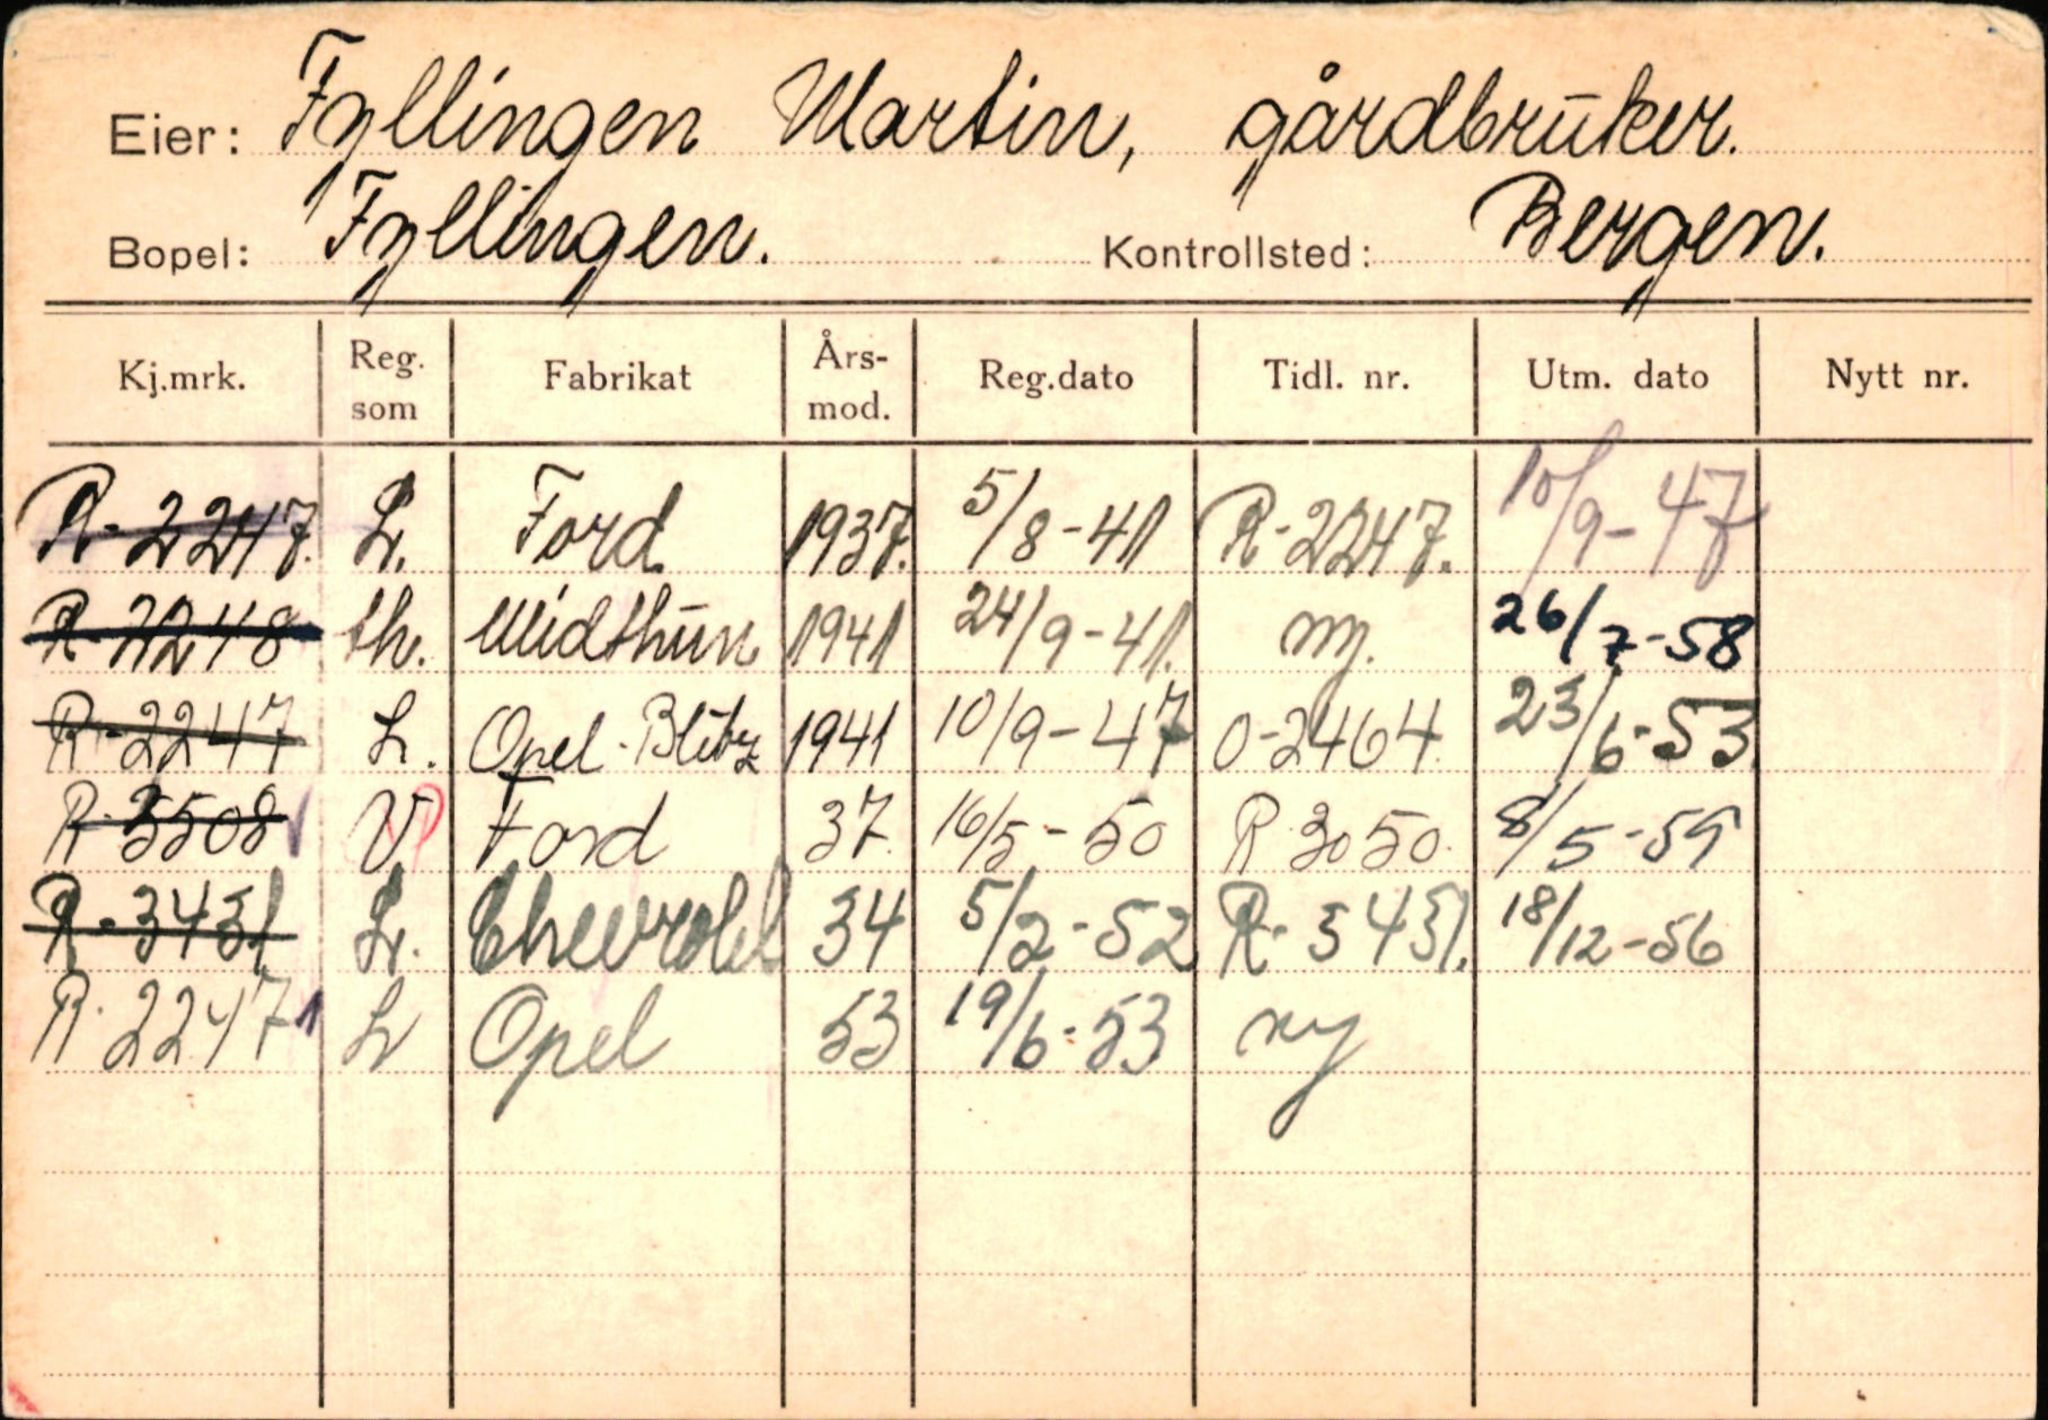 Eier: Fyllingen Martin, gårdbruker.
Bopel: Fyllingen. Kontrollsted: Bergen.
Kj.mrk. Reg. som Fabrikat Års-mod. Reg.dato Tidl. nr. Utm. dato Nytt nr.
R-2247. L. Ford. 1937. 5/8-41 R-2247. 10/9-47
R-2248 th. Midthun 1941 24/9-41. ny. 26/7-58
R-2247 L. Opel-Blitz 1941 10/9-47 O-2464. 23/6-53.
R-3508 V Ford 37. 16/5-50 R 3050. 8/5-59
R-3431 L. Chevrolet 34 5/2-52 R-3431. 18/12-56
R-2247 L Opel 53 19/6-53 ny